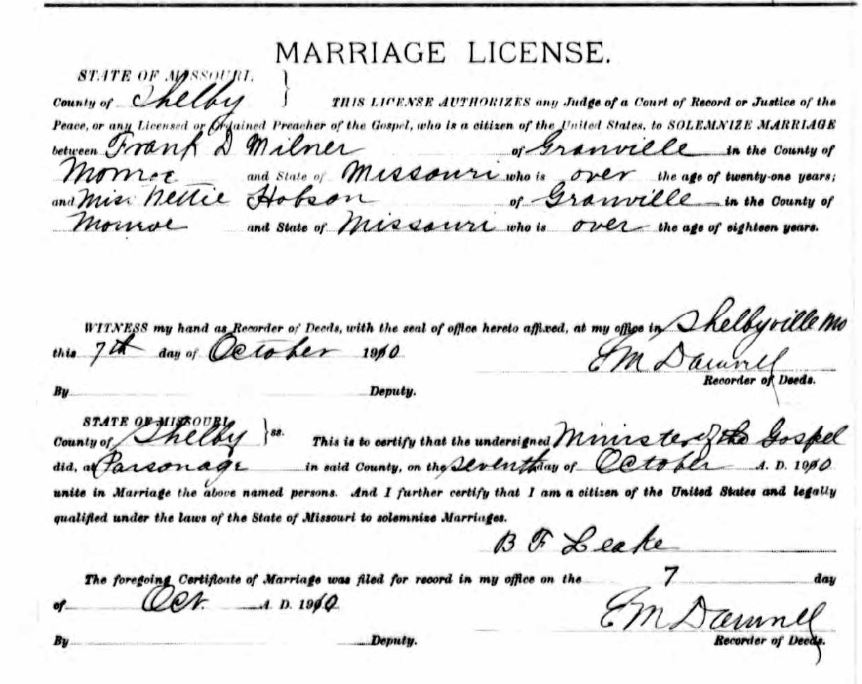 MARRIAGE LICENSE.
STATE OF MISSOURI, }
County of Shelby } THIS LICENSE AUTHORIZES any Judge of a Court of Record or Justice of the
Peace, or any Licensed or Ordained Preacher of the Gospel, who is a citizen of the United States, to SOLEMNIZE MARRIAGE
between Frank D Milner of Granville in the County of
Monroe and State of Missouri who is over the age of twenty-one years;
and Miss Nettie Hobson of Granville in the County of
Monroe and State of Missouri who is over the age of eighteen years.
WITNESS my hand as Recorder of Deeds, with the seal of office hereto affixed, at my office in Shelbyville Mo
this 7th day of October 1910
E M Damrell
Recorder of Deeds.
By Deputy.
STATE OF MISSOURI,
County of Shelby } ss. This is to certify that the undersigned Minister of the Gospel
did, at Parsonage in said County, on the seventh day of October A. D. 1910
unite in Marriage the above named persons. And I further certify that I am a citizen of the United States and legally
qualified under the laws of the State of Missouri to solemnize Marriages.
B F Leake
The foregoing Certificate of Marriage was filed for record in my office on the 7 day
of Oct. A. D. 1910
E M Damrell
By Deputy. Recorder of Deeds.